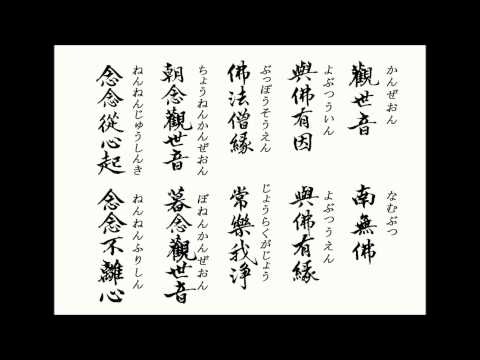 觀世音
かんぜおん
南無佛
なむぶつ
與佛有因
よぶつういん
與佛有緣
よぶつうえん
佛法僧緣
ぶっぽうそうえん
常樂我淨
じょうらくがじょう
朝念觀世音
ちょうねんかんぜおん
暮念觀世音
ぼねんかんぜおん
念念從心起
ねんねんじゅうしんき
念念不離心
ねんねんふりしん